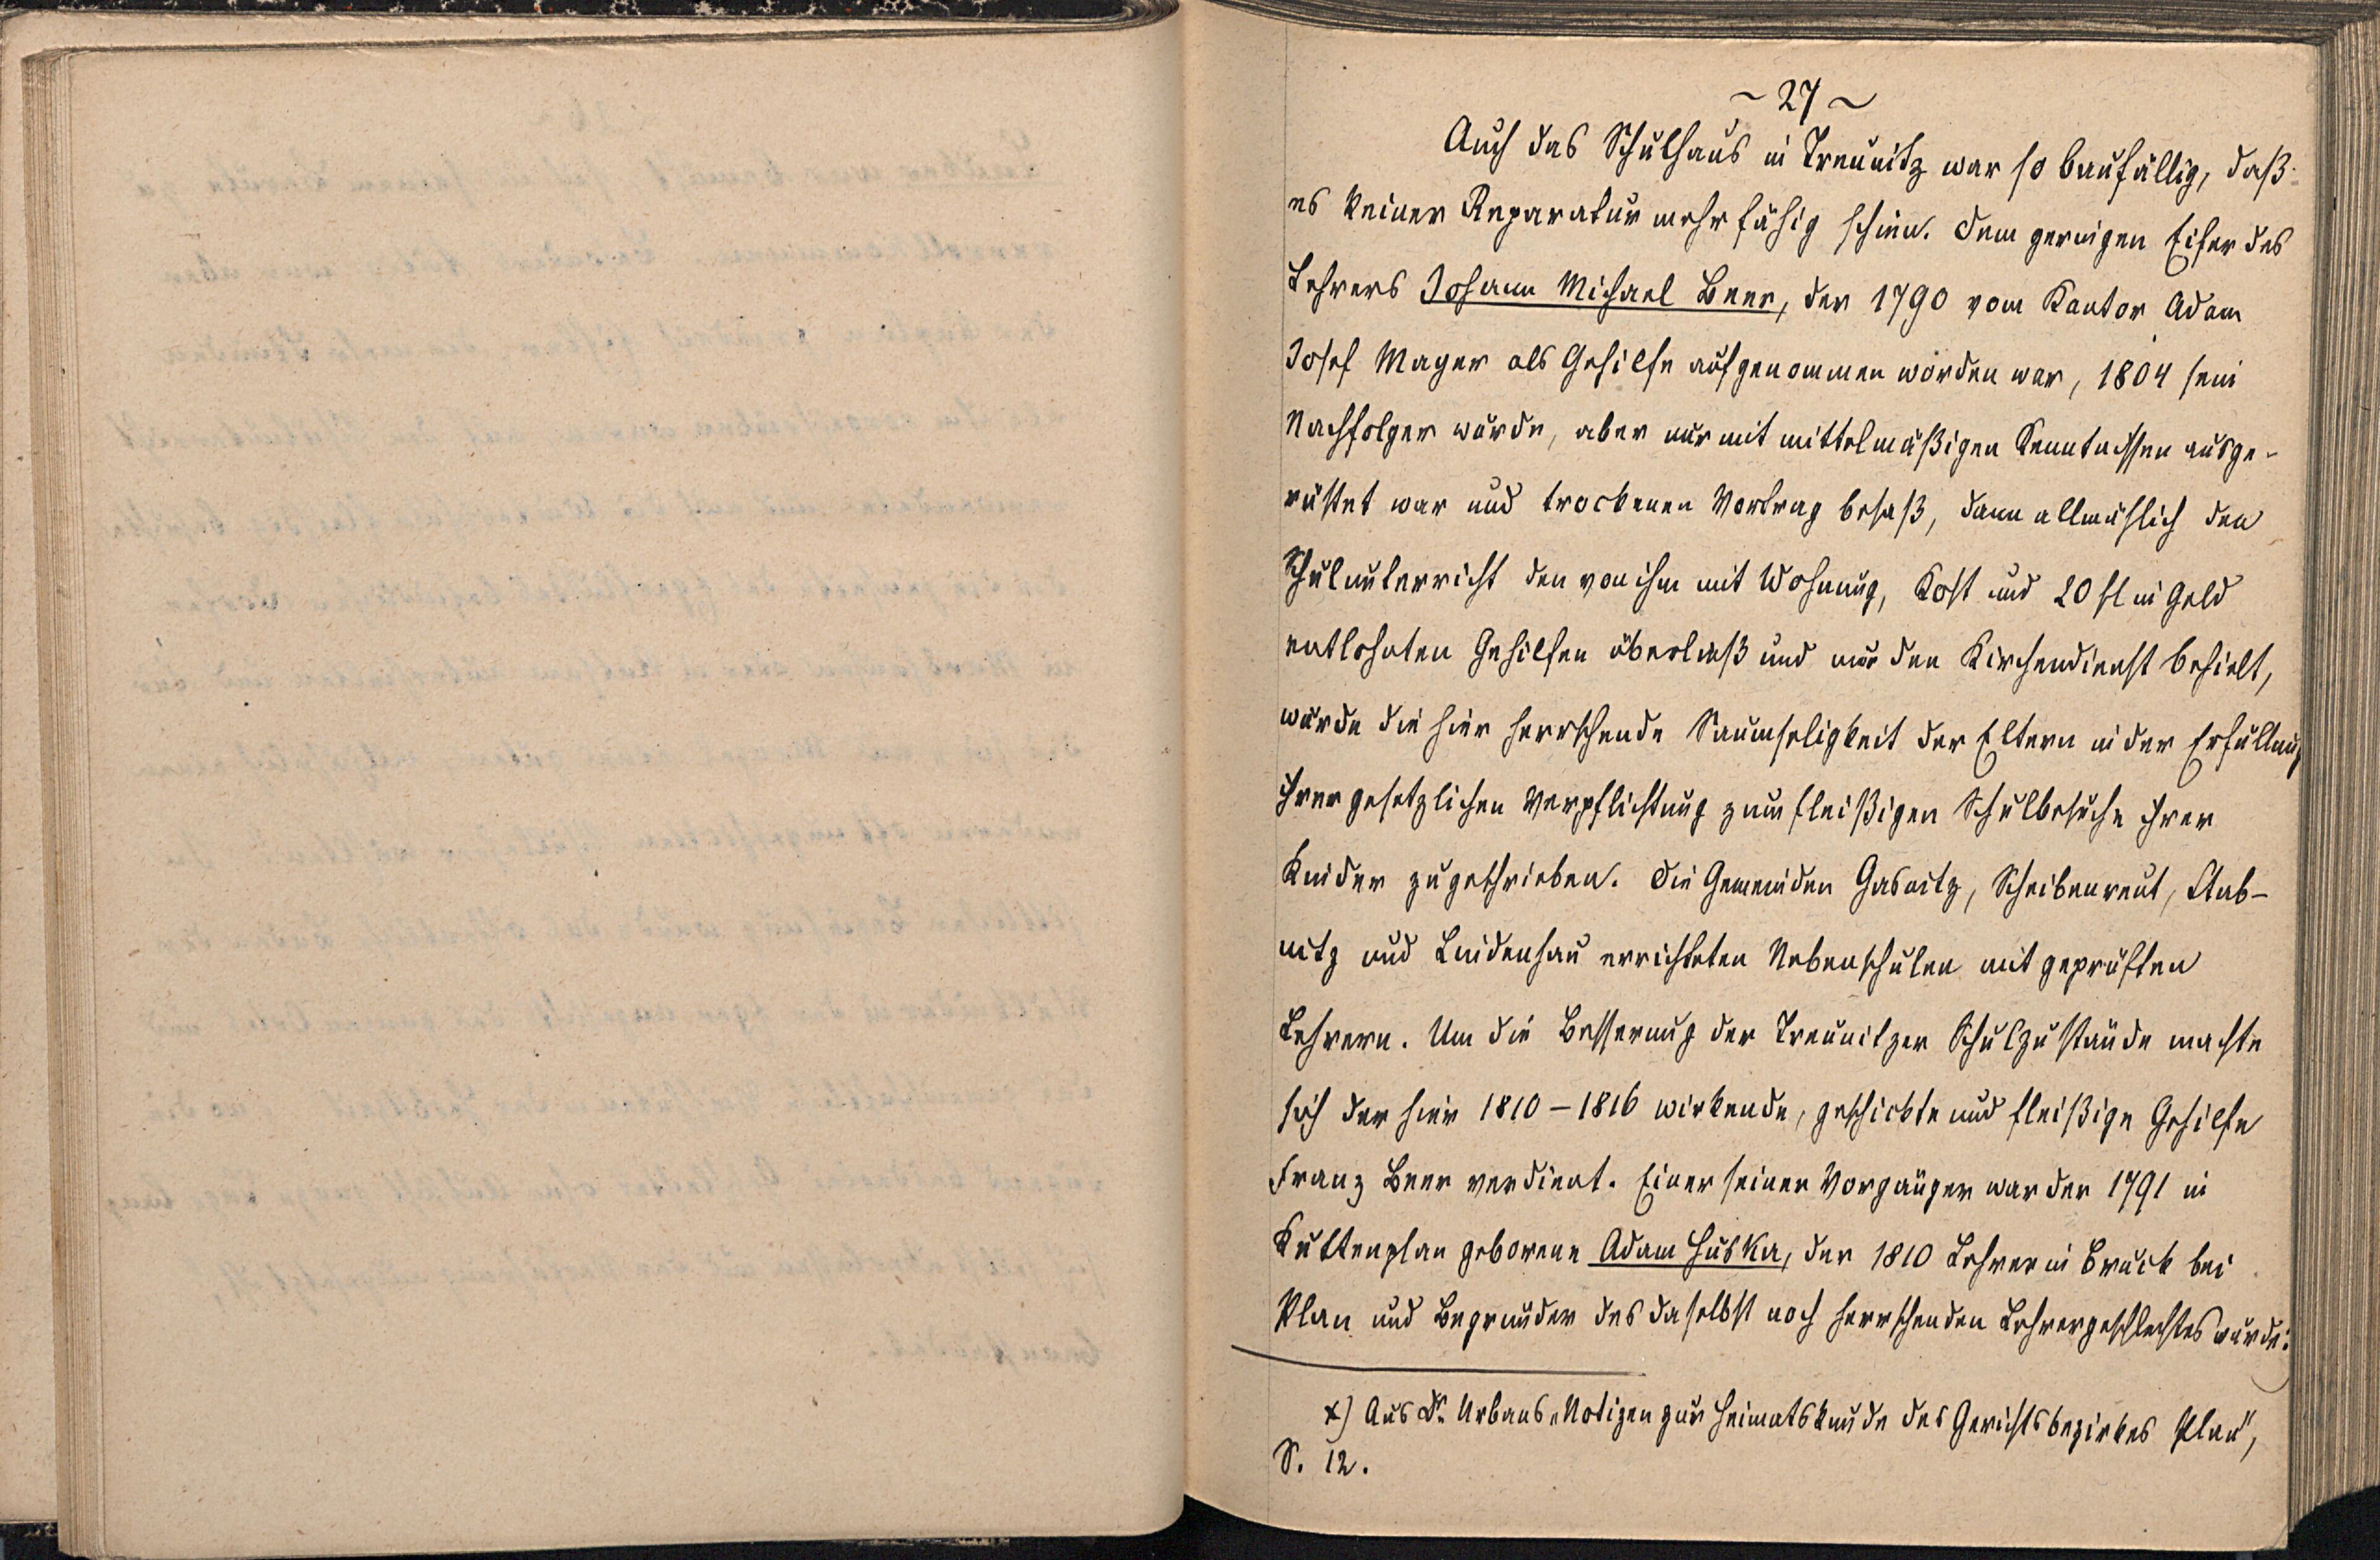 ~ 27 ~
Auch das Schulhaus in Treunitz war so baufällig, daß
es keiner Reparatur mehr fähig schien. Dem geringen Eifer des
Lehrers Johann Michael Beer, der 1790 vom Kantor Adam
Josef Mayer als Gehilfe aufgenommen worden war, 1804 sein
Nachfolger wurde, aber nur mit mittelmäßigen Kenntnissen ausge-
rüstet war und trockenen Vortrag besaß, dann allmählich den
Schulunterricht den von ihm mit Wohnung, Kost und 20 fl in Geld
entlohnten Gehilfen überließ und nur den Kirchendienst behielt,
wurde die hier herrschende Saumseligkeit der Eltern in der Erfüllung
ihrer gesetzlichen Verpflichtung zum fleißigen Schulbesuche ihrer
Kinder zugeschrieben. Die Gemeinden Gasnitz, Scheibenreut, Stab-
nitz und Lindenhau errichteten Nebenschulen mit geprüften
Lehrern. Um die Besserung der Treunitzer Schulzustände machte
sich der hier 1810 – 1816 wirkende, geschickte und fleißige Gehilfe
Franz Beer verdient. Einer seiner Vorgänger war der 1791 in
Kuttenplan geborene Adam Huska, der 1810 Lehrer in Bruck bei
Plan und Begründer des daselbst noch herrschenden Lehrergeschlechtes wurde.
x) Aus Dr. Urbans „Notizen zur Heimatskunde des Gerichtsbezirkes Plan",
S. 12.